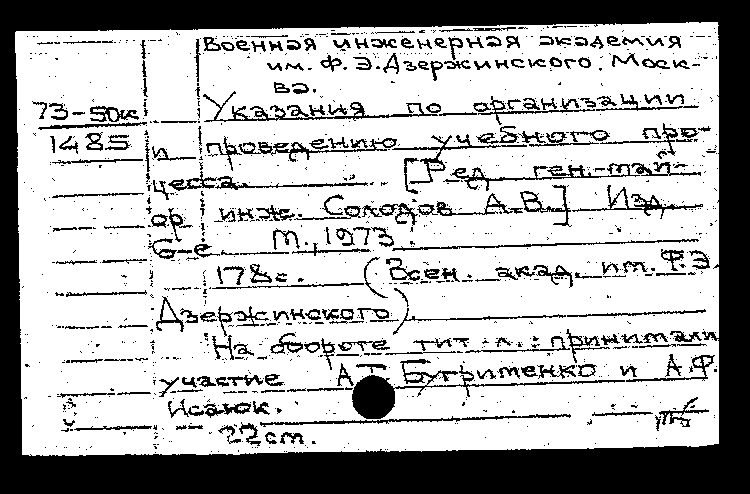 Военная инженерная академия
им. Ф.Э.Дзержинского. Моск-
ва.
73-50к Указания по организации
1485 и проведению учебного про-
цесса. [Ред. ген.-май-
ор инж. Солодов А.В.] Изд.
6-е М., 1973.
178с. (Воен. акад. им. Ф.Э.
Дзержинского).
На обороте тит. л.: принимали
участие А.Т. Бугрименко и А.Ф.
Исаюк.
22см.